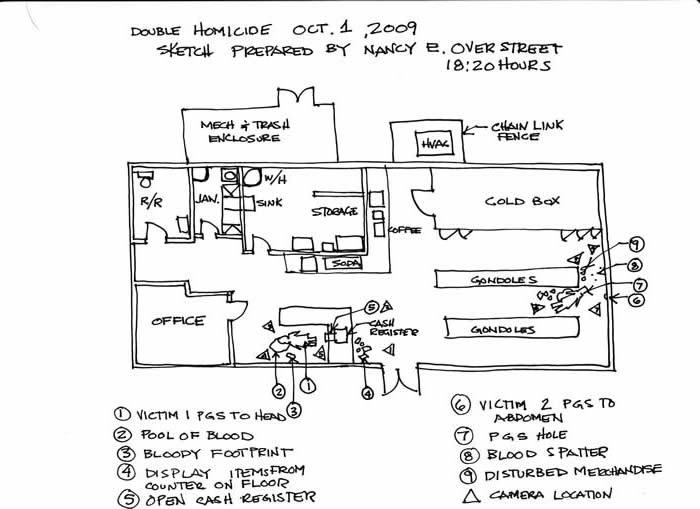 DOUBLE HOMICIDE OCT. 1, 2009
SKETCH PREPARED BY NANCY E. OVERSTREET
18:20 HOURS
MECH & TRASH
ENCLOSURE
HVAC
CHAIN LINK
FENCE
R/R
JAN.
W/H
SINK
STORAGE
COFFEE
COLD BOX
SODA
GONDOLES
GONDOLES
OFFICE
CASH
REGISTER
5
9
8
7
6
2
3
1
4
1 VICTIM 1 PGS TO HEAD
2 POOL OF BLOOD
3 BLOODY FOOTPRINT
4 DISPLAY ITEMS FROM
COUNTER ON FLOOR
5 OPEN CASH REGISTER
6 VICTIM 2 PGS TO
ABDOMEN
7 PGS HOLE
8 BLOOD SPATTER
9 DISTURBED MERCHANDISE
△ CAMERA LOCATION